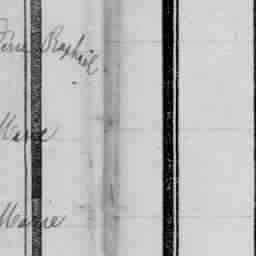 Raphael
Marie
Marie